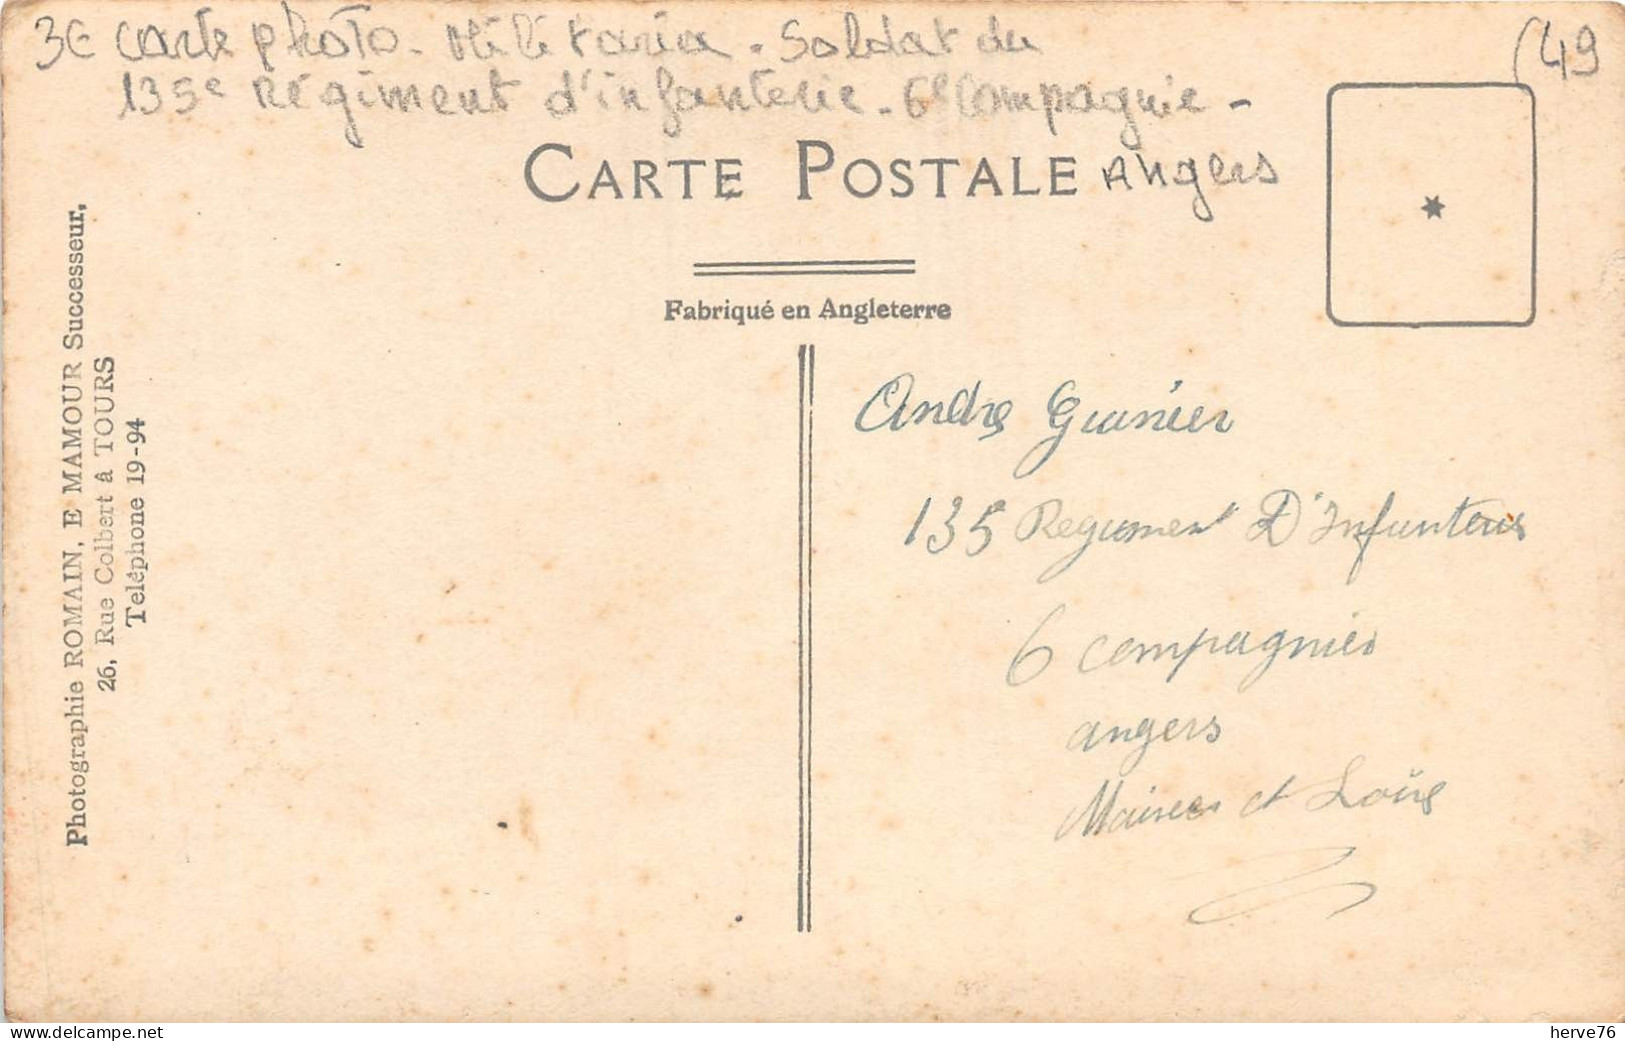 3€ carte photo - Militaria - Soldat du
135e Régiment d'infanterie - 6e Compagnie -
Angers
(49
CARTE POSTALE
Fabriqué en Angleterre
Photographie ROMAIN, E MAMOUR Successeur,
26, Rue Colbert à TOURS
Teléphone 19-94
Andre
135 Regiment D'Infanterie
6 compagnies
angers
Maines et Loire
delcampe.net
herve76